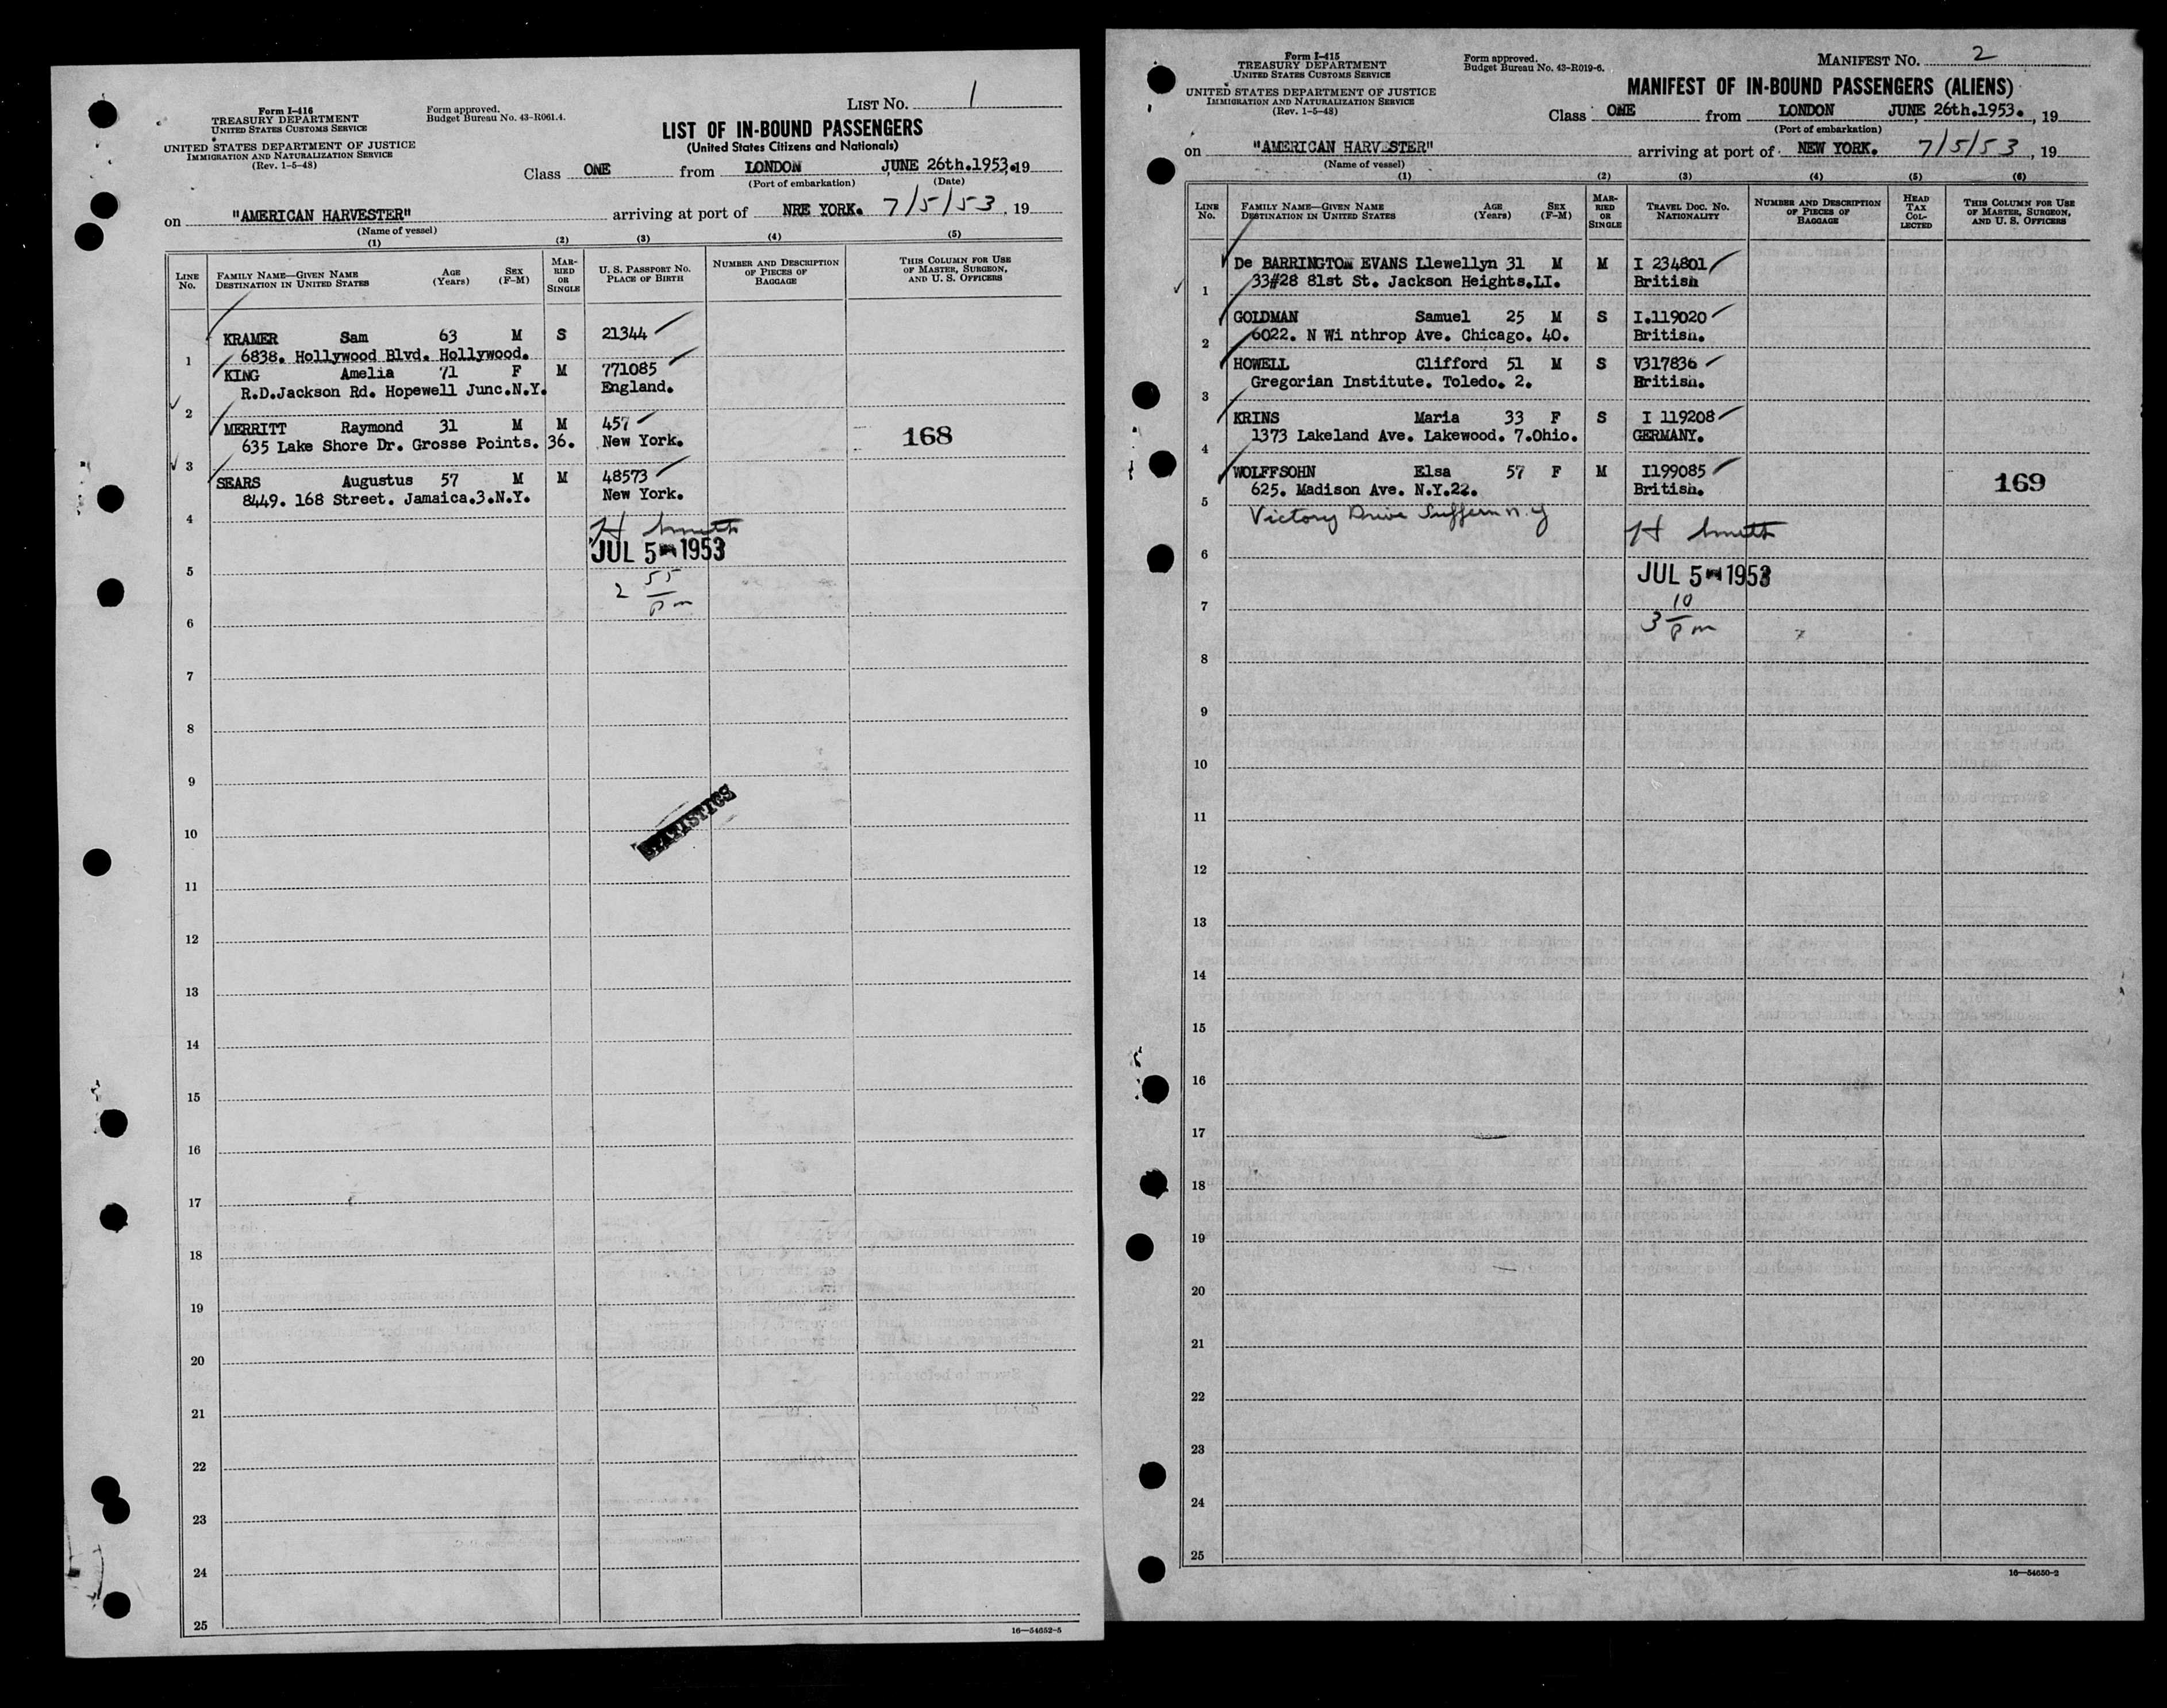 Form I-416
TREASURY DEPARTMENT
UNITED STATES CUSTOMS SERVICE
UNITED STATES DEPARTMENT OF JUSTICE
IMMIGRATION AND NATURALIZATION SERVICE
(Rev. 1-5-48)
Form approved.
Budget Bureau No. 43-R061.4.
LIST No. 1
LIST OF IN-BOUND PASSENGERS
(United States Citizens and Nationals)
Class ONE from LONDON JUNE 26th.1953. 19
(Port of embarkation) (Date)
on "AMERICAN HARVESTER" arriving at port of NRE YORK. 7/5/53, 19
(Name of vessel)
(1) (2) (3) (4) (5)
LINE No. FAMILY NAME—GIVEN NAME DESTINATION IN UNITED STATES AGE (Years) SEX (F-M) MARRIED OR SINGLE U. S. PASSPORT NO. PLACE OF BIRTH NUMBER AND DESCRIPTION OF PIECES OF BAGGAGE THIS COLUMN FOR USE OF MASTER, SURGEON, AND U. S. OFFICERS
KRAMER Sam 63 M S 21344
1 6838. Hollywood Blvd. Hollywood.
KING Amelia 71 F M 771085
R.D.Jackson Rd. Hopewell Junc.N.Y. England.
2
MERRITT Raymond 31 M M 457
635 Lake Shore Dr. Grosse Points. 36. New York.
168
3
SEARS Augustus 57 M M 48573
8449. 168 Street. Jamaica.3.N.Y. New York.
4
H Smith
JUL 5 1953
5
2 55 pm
6
7
8
9
STATISTICS
10
11
12
13
14
15
16
17
18
19
20
21
22
23
24
25
16—54652-5
Form I-415
TREASURY DEPARTMENT
UNITED STATES CUSTOMS SERVICE
UNITED STATES DEPARTMENT OF JUSTICE
IMMIGRATION AND NATURALIZATION SERVICE
(Rev. 1-5-48)
Form approved.
Budget Bureau No. 43-R019-6.
MANIFEST No. 2
MANIFEST OF IN-BOUND PASSENGERS (ALIENS)
Class ONE from LONDON JUNE 26th.1953., 19
(Port of embarkation)
on "AMERICAN HARVESTER" arriving at port of NEW YORK. 7/5/53, 19
(Name of vessel)
(1) (2) (3) (4) (5) (6)
LINE No. FAMILY NAME—GIVEN NAME DESTINATION IN UNITED STATES AGE (Years) SEX (F-M) MARRIED OR SINGLE TRAVEL DOC. NO. NATIONALITY NUMBER AND DESCRIPTION OF PIECES OF BAGGAGE HEAD TAX COLLECTED THIS COLUMN FOR USE OF MASTER, SURGEON, AND U. S. OFFICERS
De BARRINGTON EVANS Llewellyn 31 M M I 234801
1 33#28 81st St. Jackson Heights.LI. British
GOLDMAN Samuel 25 M S I.119020
2 6022. N Wi nthrop Ave. Chicago. 40. British.
HOWELL Clifford 51 M S V317836
Gregorian Institute. Toledo. 2. British.
3
KRINS Maria 33 F S I 119208
1373 Lakeland Ave. Lakewood. 7.Ohio. GERMANY.
4
WOLFFSOHN Elsa 57 F M I199085
625. Madison Ave. N.Y.22. British.
169
5
Victory Drive Suffern N.Y
H Smith
6
JUL 5 1953
7
3 10 pm
8
9
10
11
12
13
14
15
16
17
18
19
20
21
22
23
24
25
16—54650-2